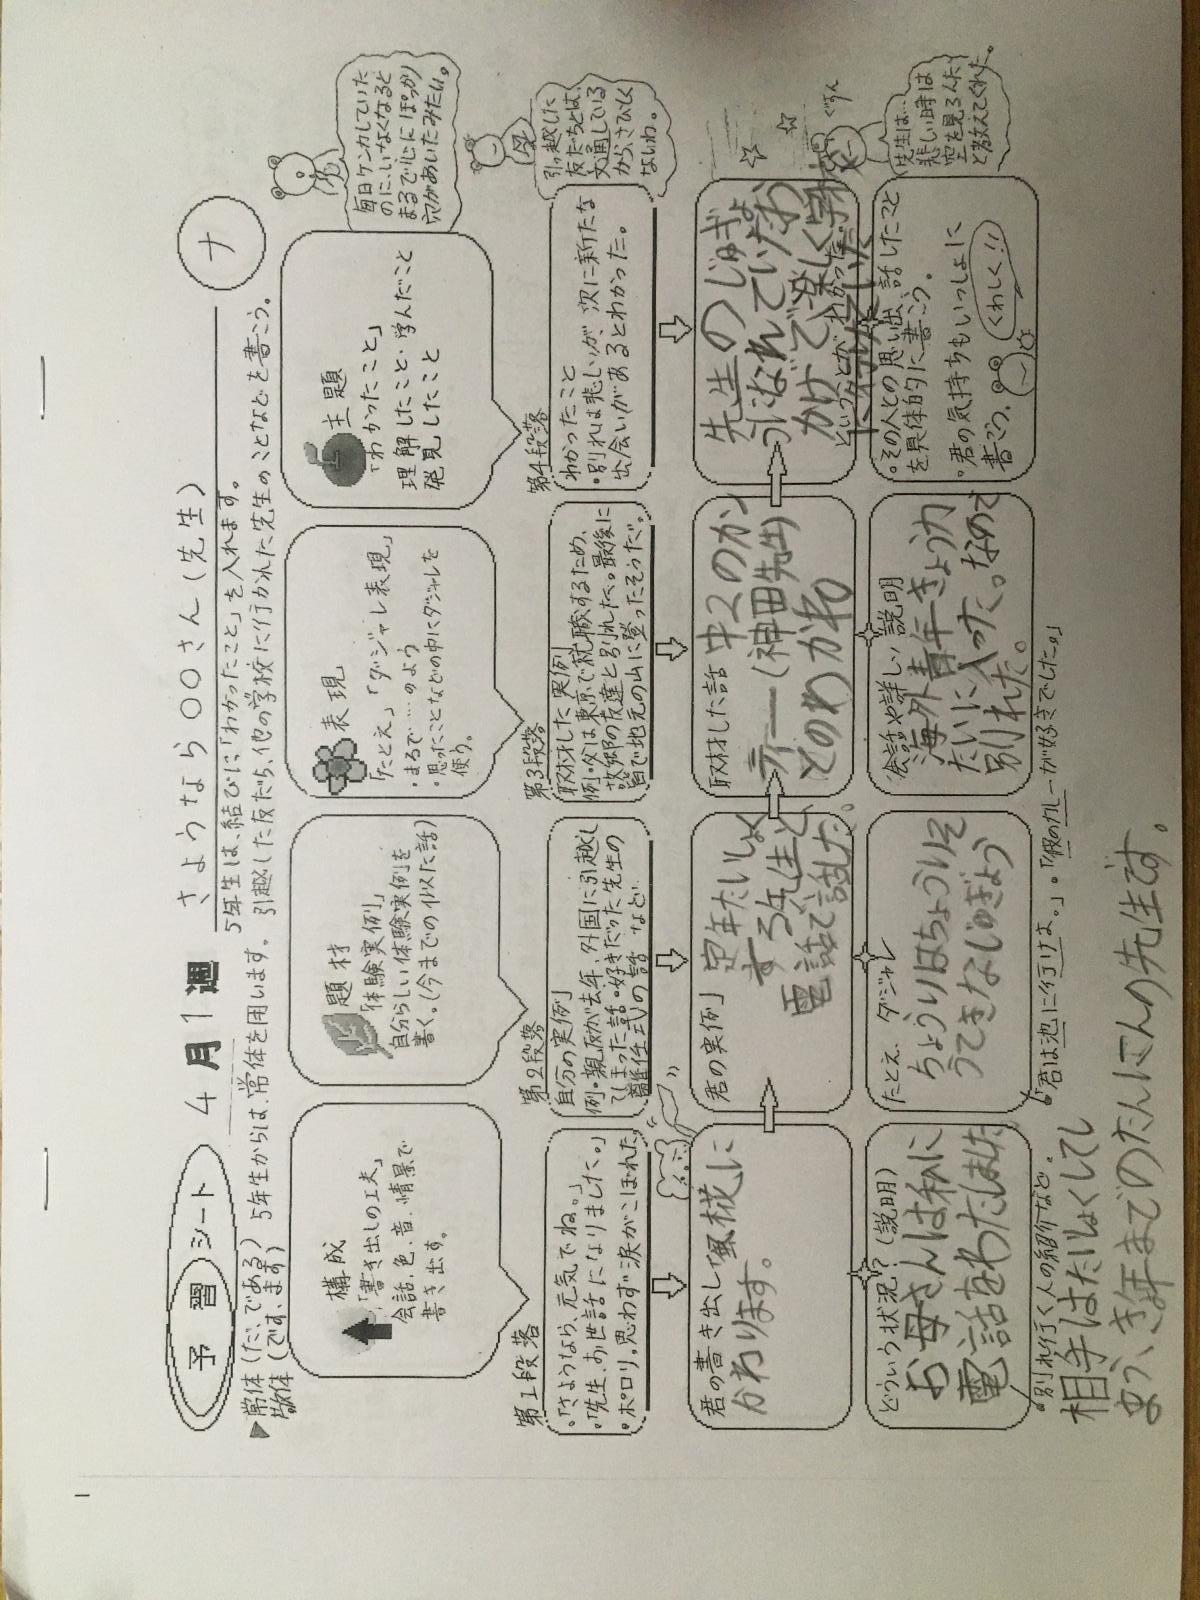 予習シート
4月1週
さようなら○○さん(先生)
ナ
▶常体(だ、である)5年生からは、常体を用います。
敬体(です、ます)
5年生は、結びに「わかったこと」を入れます。
引越した友だち、他の学校に行かれた先生のことなどを書こう。
構成
「書き出しの工夫」
会話、色、音、情景で
書き出す。
題材
「体験実例」
自分らしい体験実例を
書く。(今までの似た話)
表現
「たとえ」「ダジャレ表現」
・まるで……のよう
・思ったことなどの中にダジャレを
使う。
主題
「わかったこと」
理解したこと・学んだこと
発見したこと
毎日ケンカしていた
のに、いなくなると
まるで心にぽっかり
穴があいたみたい。
第1段落
。「さようなら、元気でね。」
。「先生、お世話になりました。」
。ポロリ。思わず涙がこぼれた
第2段落
自分の実例
例・親友が去年、外国に引越し
てしまった話・好きだった先生の
離任式の話 など
第3段落
取材した実例
例・父は東京で就職するため、
故郷の友達と別れた。最後に
皆で地元の山に登ったそうだ。
第4段落
わかったこと
・別れは悲しいが、次に新たな
出会いがあるとわかった。
引っ越した
友だちとは、
文通している
からさびしく
ないわ。
君の書き出し
風椛に
かわります。
君の実例
定年たいしょく
する先生と
電話で話した。
取材した話
中2のかん
ティー(神田先生)
とのわかれ
先生のじゅぎょ
うになれていたお
かげで、楽しく学校
に行けていた
ということがわかった。
ぐすん
先生は…
悲しい時は
空を見るんだ
と教えてくれた。
どういう状況?(説明)
お母さんは私に
電話をわたしました
たとえ、ダジャレ
ちょうりはちょうりそ
うできなじゅぎょう
会話や詳しい説明
海外青年きょう力
たいに入った。なので
別れた。
。その人との思い出、話したこと
を具体的に書こう。
。君の気持ちもいっしょに
書こう。
くわしく!!
。別れ行く人の紹介など。
。「君は池に行けよ。」。「彼のカレーが好きでした。」
相手はたいしょくしてし
まう、き年までのたんにんの先生です。